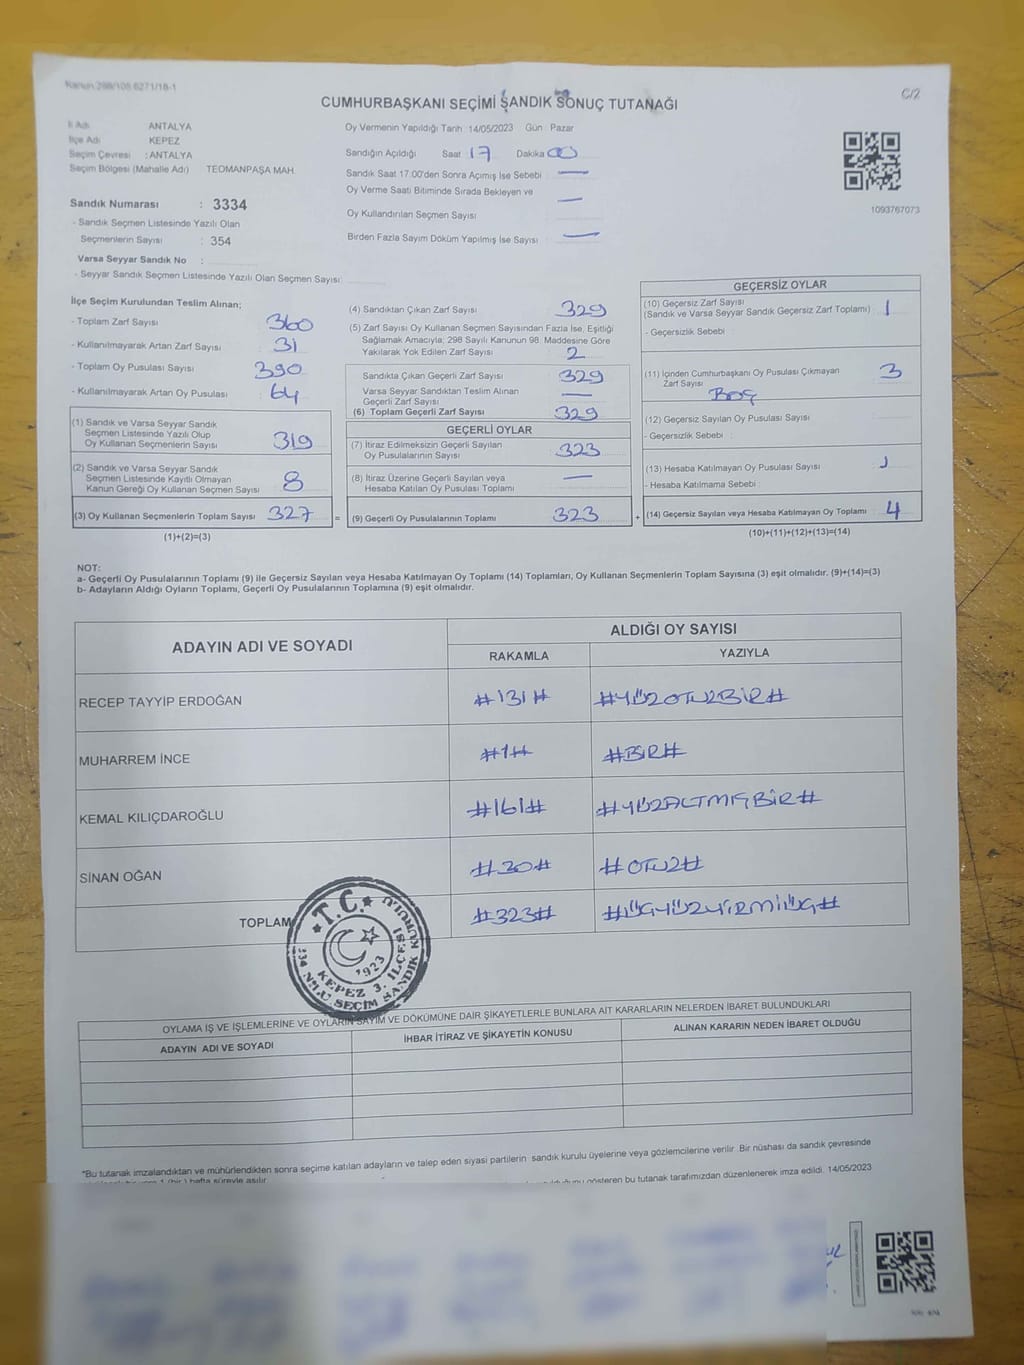 Kanun:298/105.6271/18-1
C/2
CUMHURBAŞKANI SEÇİMİ SANDIK SONUÇ TUTANAĞI
İl Adı ANTALYA
İlçe Adı : KEPEZ
Seçim Çevresi : ANTALYA
Seçim Bölgesi (Mahalle Adı) TEOMANPAŞA MAH.
Sandık Numarası : 3334
- Sandık Seçmen Listesinde Yazılı Olan
Seçmenlerin Sayısı : 354
Varsa Seyyar Sandık No :
- Seyyar Sandık Seçmen Listesinde Yazılı Olan Seçmen Sayısı:
Oy Vermenin Yapıldığı Tarih :14/05/2023 Gün : Pazar
Sandığın Açıldığı Saat 17 Dakika 00
Sandık Saat 17.00'den Sonra Açılmış İse Sebebi : —
Oy Verme Saati Bitiminde Sırada Bekleyen ve
Oy Kullandırılan Seçmen Sayısı : —
Birden Fazla Sayım Döküm Yapılmış İse Sayısı : —
1093767073
İlçe Seçim Kurulundan Teslim Alınan;
- Toplam Zarf Sayısı : 360
- Kullanılmayarak Artan Zarf Sayısı : 31
- Toplam Oy Pusulası Sayısı : 390
- Kullanılmayarak Artan Oy Pusulası : 64
(1) Sandık ve Varsa Seyyar Sandık
Seçmen Listesinde Yazılı Olup
Oy Kullanan Seçmenlerin Sayısı : 319
(2) Sandık ve Varsa Seyyar Sandık
Seçmen Listesinde Kayıtlı Olmayan
Kanun Gereği Oy Kullanan Seçmen Sayısı : 8
(3) Oy Kullanan Seçmenlerin Toplam Sayısı : 327
(1)+(2)=(3)
(4) Sandıktan Çıkan Zarf Sayısı : 329
(5) Zarf Sayısı Oy Kullanan Seçmen Sayısından Fazla İse, Eşitliği
Sağlamak Amacıyla; 298 Sayılı Kanunun 98. Maddesine Göre
Yakılarak Yok Edilen Zarf Sayısı : 2
Sandıkta Çıkan Geçerli Zarf Sayısı : 329
Varsa Seyyar Sandıktan Teslim Alınan
Geçerli Zarf Sayısı : —
(6) Toplam Geçerli Zarf Sayısı : 329
GEÇERLİ OYLAR
(7) İtiraz Edilmeksizin Geçerli Sayılan
Oy Pusulalarının Sayısı : 323
(8) İtiraz Üzerine Geçerli Sayılan veya
Hesaba Katılan Oy Pusulası Toplamı : —
= (9) Geçerli Oy Pusulalarının Toplamı : 323
GEÇERSİZ OYLAR
(10) Geçersiz Zarf Sayısı
(Sandık ve Varsa Seyyar Sandık Geçersiz Zarf Toplamı) : 1
- Geçersizlik Sebebi :
(11) İçinden Cumhurbaşkanı Oy Pusulası Çıkmayan
Zarf Sayısı : 3
BOŞ
(12) Geçersiz Sayılan Oy Pusulası Sayısı :
- Geçersizlik Sebebi :
(13) Hesaba Katılmayan Oy Pusulası Sayısı :
- Hesaba Katılmama Sebebi :
+ (14) Geçersiz Sayılan veya Hesaba Katılmayan Oy Toplamı : 4
(10)+(11)+(12)+(13)=(14)
NOT:
a- Geçerli Oy Pusulalarının Toplamı (9) ile Geçersiz Sayılan veya Hesaba Katılmayan Oy Toplamı (14) Toplamları, Oy Kullanan Seçmenlerin Toplam Sayısına (3) eşit olmalıdır. (9)+(14)=(3)
b- Adayların Aldığı Oyların Toplamı, Geçerli Oy Pusulalarının Toplamına (9) eşit olmalıdır.
ADAYIN ADI VE SOYADI
ALDIĞI OY SAYISI
RAKAMLA YAZIYLA
RECEP TAYYİP ERDOĞAN #131# #YÜZOTUZBİR#
MUHARREM İNCE #1# #BİR#
KEMAL KILIÇDAROĞLU #161# #YÜZALTMIŞBİR#
SİNAN OĞAN #30# #OTUZ#
TOPLAM #323# #ÜÇYÜZYİRMİÜÇ#
T.C.
1923
KEPEZ 3. İLÇESİ
334 NOLU SEÇİM SANDIK KURULU
OYLAMA İŞ VE İŞLEMLERİNE VE OYLARIN SAYIM VE DÖKÜMÜNE DAİR ŞİKAYETLERLE BUNLARA AİT KARARLARIN NELERDEN İBARET BULUNDUKLARI
ADAYIN ADI VE SOYADI İHBAR İTİRAZ VE ŞİKAYETİN KONUSU ALINAN KARARIN NEDEN İBARET OLDUĞU
*Bu tutanak imzalandıktan ve mühürlendikten sonra seçime katılan adayların ve talep eden siyasi partilerin sandık kurulu üyelerine veya gözlemcilerine verilir. Bir nüshası da sandık çevresinde
1 (bir) hafta süreyle asılır. gösteren bu tutanak tarafımızdan düzenlenerek imza edildi. 14/05/2023